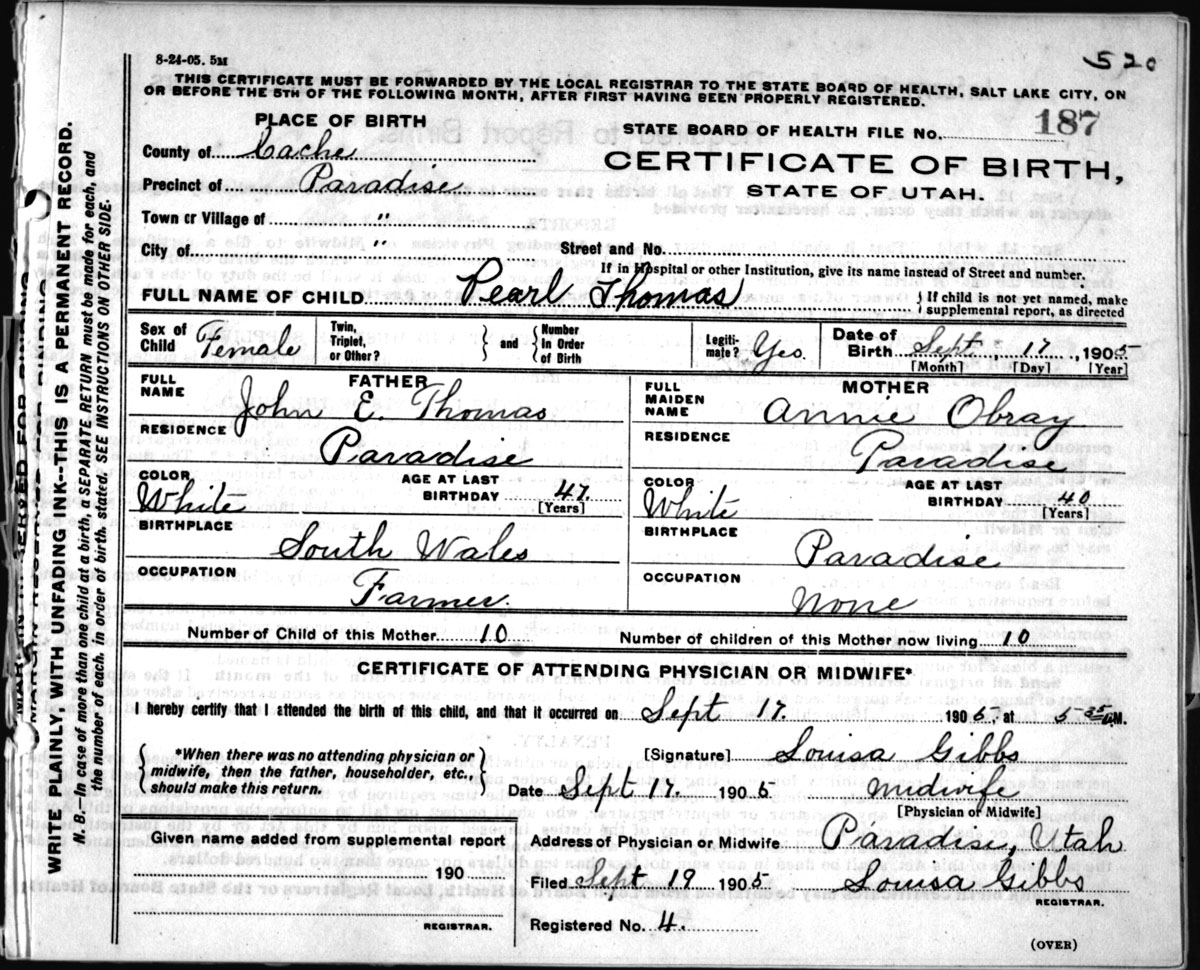 8-24-05. 5M
520
THIS CERTIFICATE MUST BE FORWARDED BY THE LOCAL REGISTRAR TO THE STATE BOARD OF HEALTH, SALT LAKE CITY, ON
OR BEFORE THE 5TH OF THE FOLLOWING MONTH, AFTER FIRST HAVING BEEN PROPERLY REGISTERED.
PLACE OF BIRTH
STATE BOARD OF HEALTH FILE NO. 187
County of Cache
CERTIFICATE OF BIRTH,
Precinct of Paradise
STATE OF UTAH.
Town or Village of "
City of " Street and No.
If in Hospital or other Institution, give its name instead of Street and number.
FULL NAME OF CHILD Pearl Thomas { If child is not yet named, make
supplemental report, as directed
Sex of Child Female Twin, Triplet, or Other? } and { Number In Order of Birth Legiti-mate? Yes. Date of Birth Sept. 17, 1905
[Month] [Day] [Year]
FATHER
FULL NAME John E. Thomas
RESIDENCE Paradise
COLOR White AGE AT LAST BIRTHDAY 47.
[Years]
BIRTHPLACE South Wales
OCCUPATION Farmer.
MOTHER
FULL MAIDEN NAME Annie Obray
RESIDENCE Paradise
COLOR White AGE AT LAST BIRTHDAY 40
[Years]
BIRTHPLACE Paradise
OCCUPATION None
Number of Child of this Mother 10 Number of children of this Mother now living 10
CERTIFICATE OF ATTENDING PHYSICIAN OR MIDWIFE*
I hereby certify that I attended the birth of this child, and that it occurred on Sept 17. 1905. at 5-35 M.
{ *When there was no attending physician or
midwife, then the father, householder, etc.,
should make this return. }
[Signature] Louisa Gibbs
Date Sept 17. 1905 Midwife
[Physician or Midwife]
Given name added from supplemental report
190
REGISTRAR.
Address of Physician or Midwife Paradise, Utah
Filed Sept 19 1905 Louisa Gibbs
REGISTRAR.
Registered No. 4.
(OVER)
MARGIN RESERVED FOR BINDING
WRITE PLAINLY, WITH UNFADING INK--THIS IS A PERMANENT RECORD.
N. B.—In case of more than one child at a birth, a SEPARATE RETURN must be made for each, and
the number of each, in order of birth, stated. SEE INSTRUCTIONS ON OTHER SIDE.